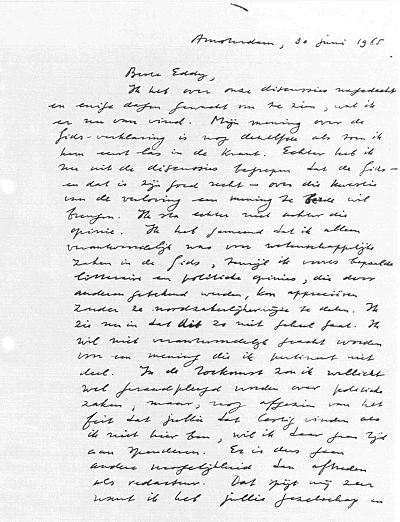 Amsterdam, 30 juni 1965
Beste Eddy,
Ik heb over onze discussies nagedacht
en enige dagen gewacht om te zien, wat ik
er nu van vind. Mijn mening over de
Gids-verklaring is nog dezelfde als toen ik
hem eerst las in de krant. Echter heb ik
nu uit de discussies begrepen dat de Gids -
en dat is zijn goed recht - over die kwestie
van de verloving een mening te berde wil
brengen. Ik sta echter niet achter die
opinie. Ik heb gemeend dat ik alleen
verantwoordelijk was voor wetenschappelijke
zaken in de Gids, terwijl ik voorts bepaalde
litteraire en politieke opinies, die door
anderen getekend werden, kon appreciëren
zonder ze noodzakelijkerwijze te delen. Ik
zie nu in dat dit zo niet geheel gaat. Ik
wil niet verantwoordelijk geacht worden
voor een mening die ik pertinent niet
deel. In de toekomst zou ik wellicht
wel geraadpleegd worden over politieke
zaken, maar, nog afgezien van het
feit dat jullie dat lastig vinden als
ik niet hier ben, wil ik daar geen tijd
aan spenderen. Er is dus geen
andere mogelijkheid dan aftreden
als redacteur. Dat spijt mij zeer
want ik heb jullie gezelschap en